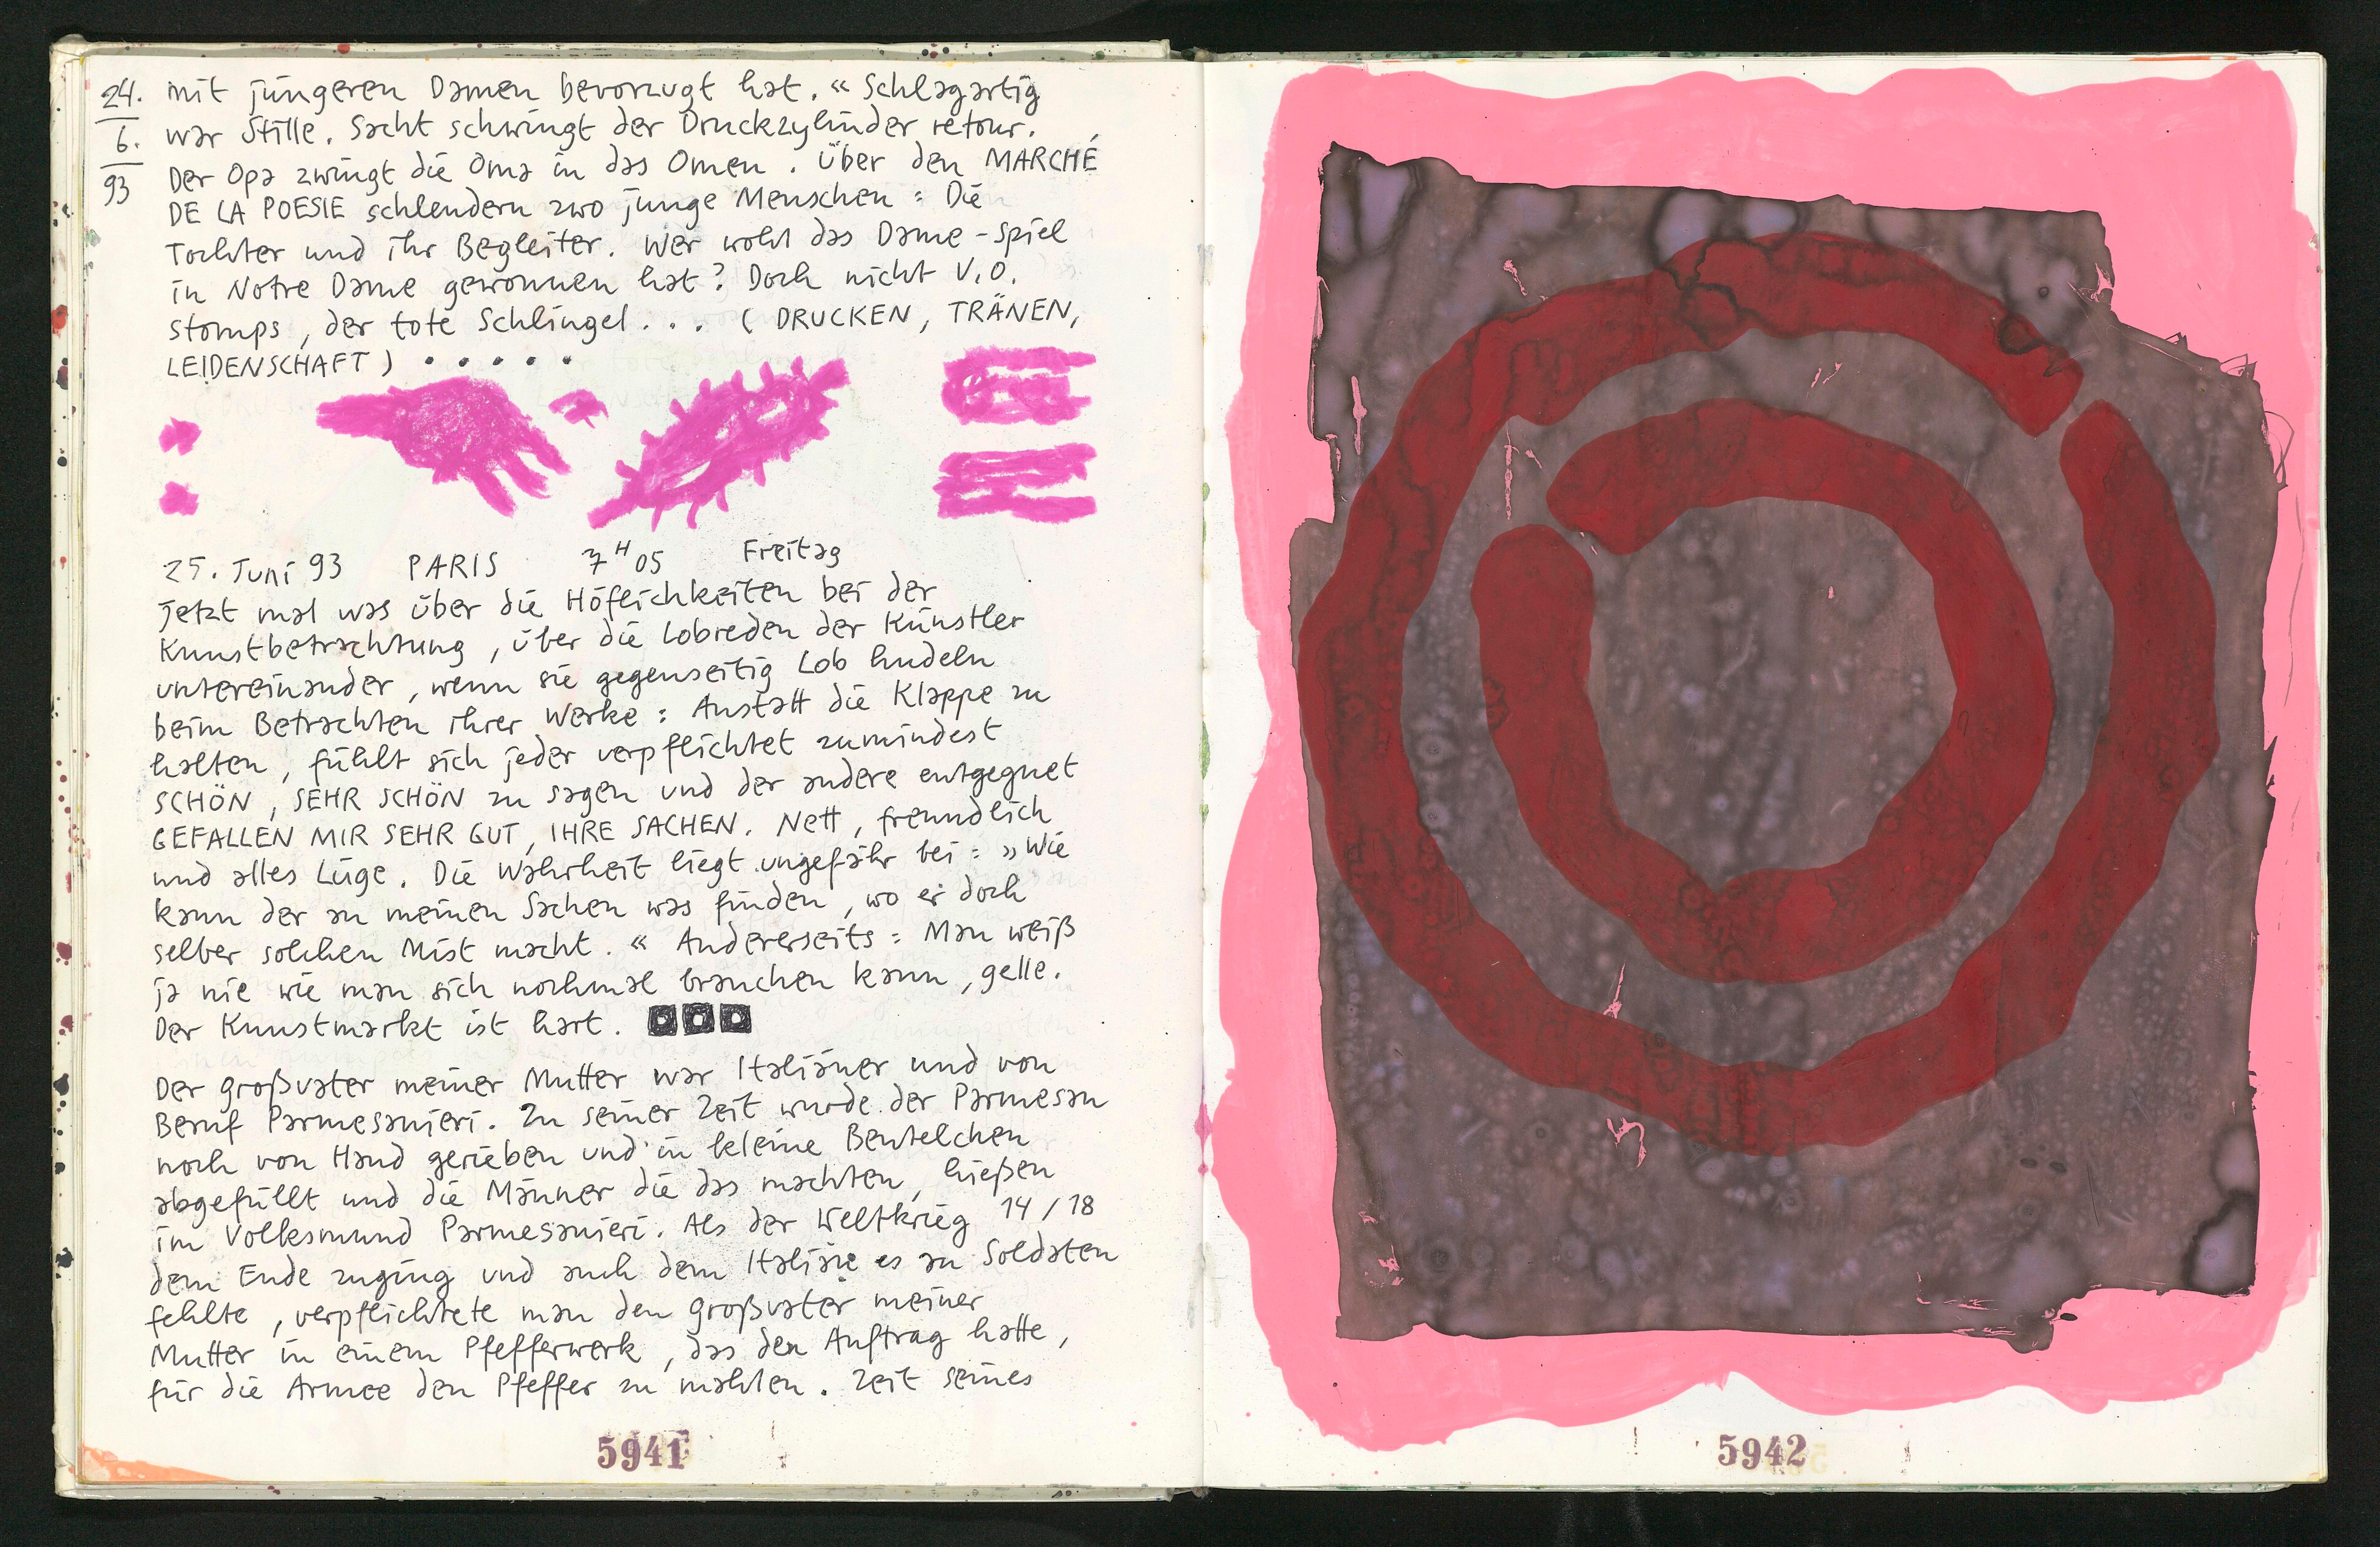 24.
6.
93
mit jüngeren Damen bevorzugt hat.« Schlagartig
war Stille. Sacht schwingt der Druckzylinder retour.
Der Opa zwingt die Oma in das Omen. Über den MARCHÉ
DE LA POESIE schlendern zwo junge Menschen: Die
Tochter und ihr Begleiter. Wer wohl das Dame-Spiel
in Notre Dame gewonnen hat? Doch nicht V.O.
Stomps, der tote Schlingel... (DRUCKEN, TRÄNEN,
LEIDENSCHAFT) .....
25. Juni 93 PARIS 7 H 05 Freitag
Jetzt mal was über die Höflichkeiten bei der
Kunstbetrachtung, über die Lobreden der Künstler
untereinander, wenn sie gegenseitig Lob hudeln
beim Betrachten ihrer Werke: Anstatt die Klappe zu
halten, fühlt sich jeder verpflichtet zumindest
SCHÖN, SEHR SCHÖN zu sagen und der andere entgegnet
GEFALLEN MIR SEHR GUT, IHRE SACHEN. Nett, freundlich
und alles Lüge. Die Wahrheit liegt ungefähr bei: »Wie
kann der an meinen Sachen was finden, wo er doch
selber solchen Mist macht.« Andererseits: Man weiß
ja nie wie man sich nochmal brauchen kann, gelle.
Der Kunstmarkt ist hart.
Der Großvater meiner Mutter war Italiäner und von
Beruf Parmesanieri. Zu seiner Zeit wurde der Parmesan
noch von Hand gerieben und in kleine Beutelchen
abgefüllt und die Männer die das machten, hießen
im Volksmund Parmesanieri. Als der Weltkrieg 14/18
dem Ende zuging und auch dem Italiäe es an Soldaten
fehlte, verpflichtete man den Großvater meiner
Mutter in einem Pfefferwerk, das den Auftrag hatte,
für die Armee den Pfeffer zu mahlen. Zeit seines
5941
5942